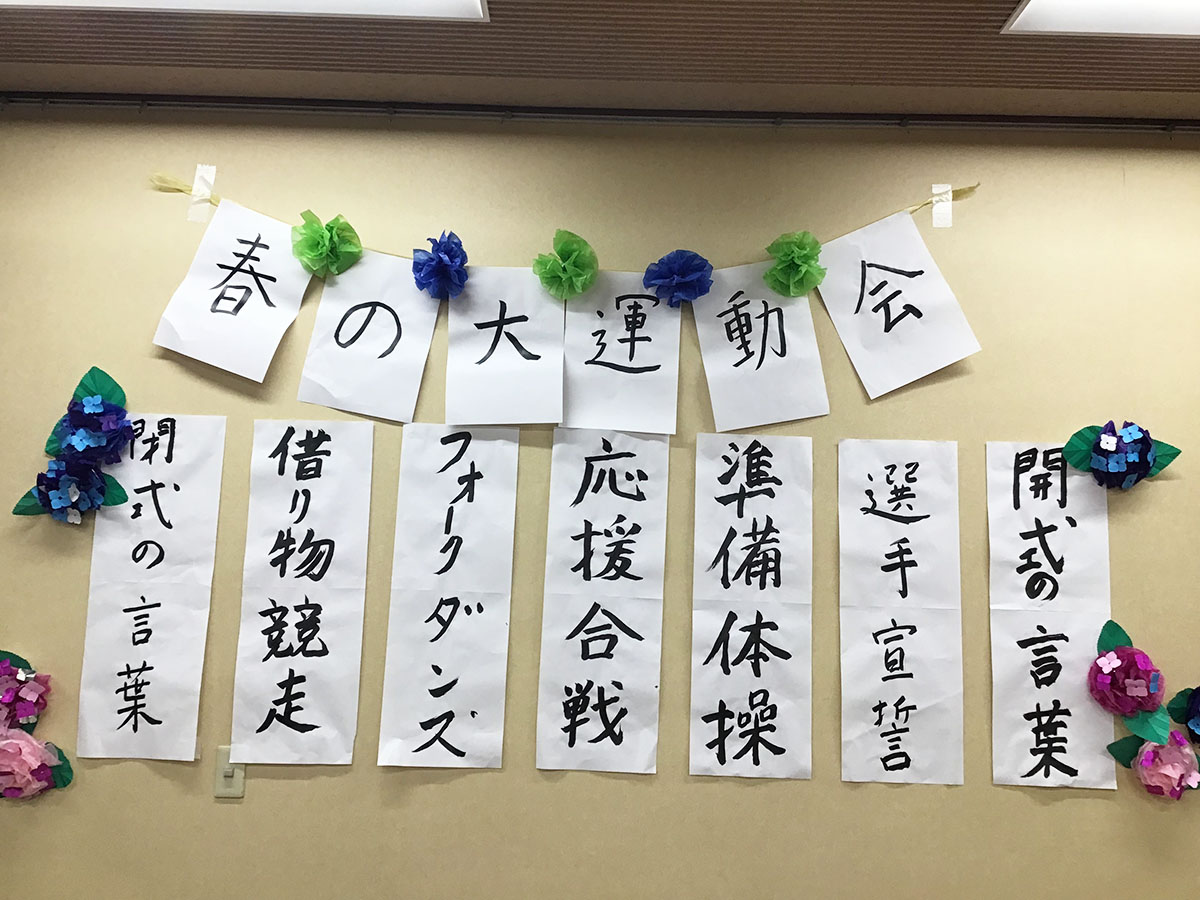 春の大運動会
開式の言葉
選手宣誓
準備体操
応援合戦
フォークダンズ
借り物競走
閉式の言葉